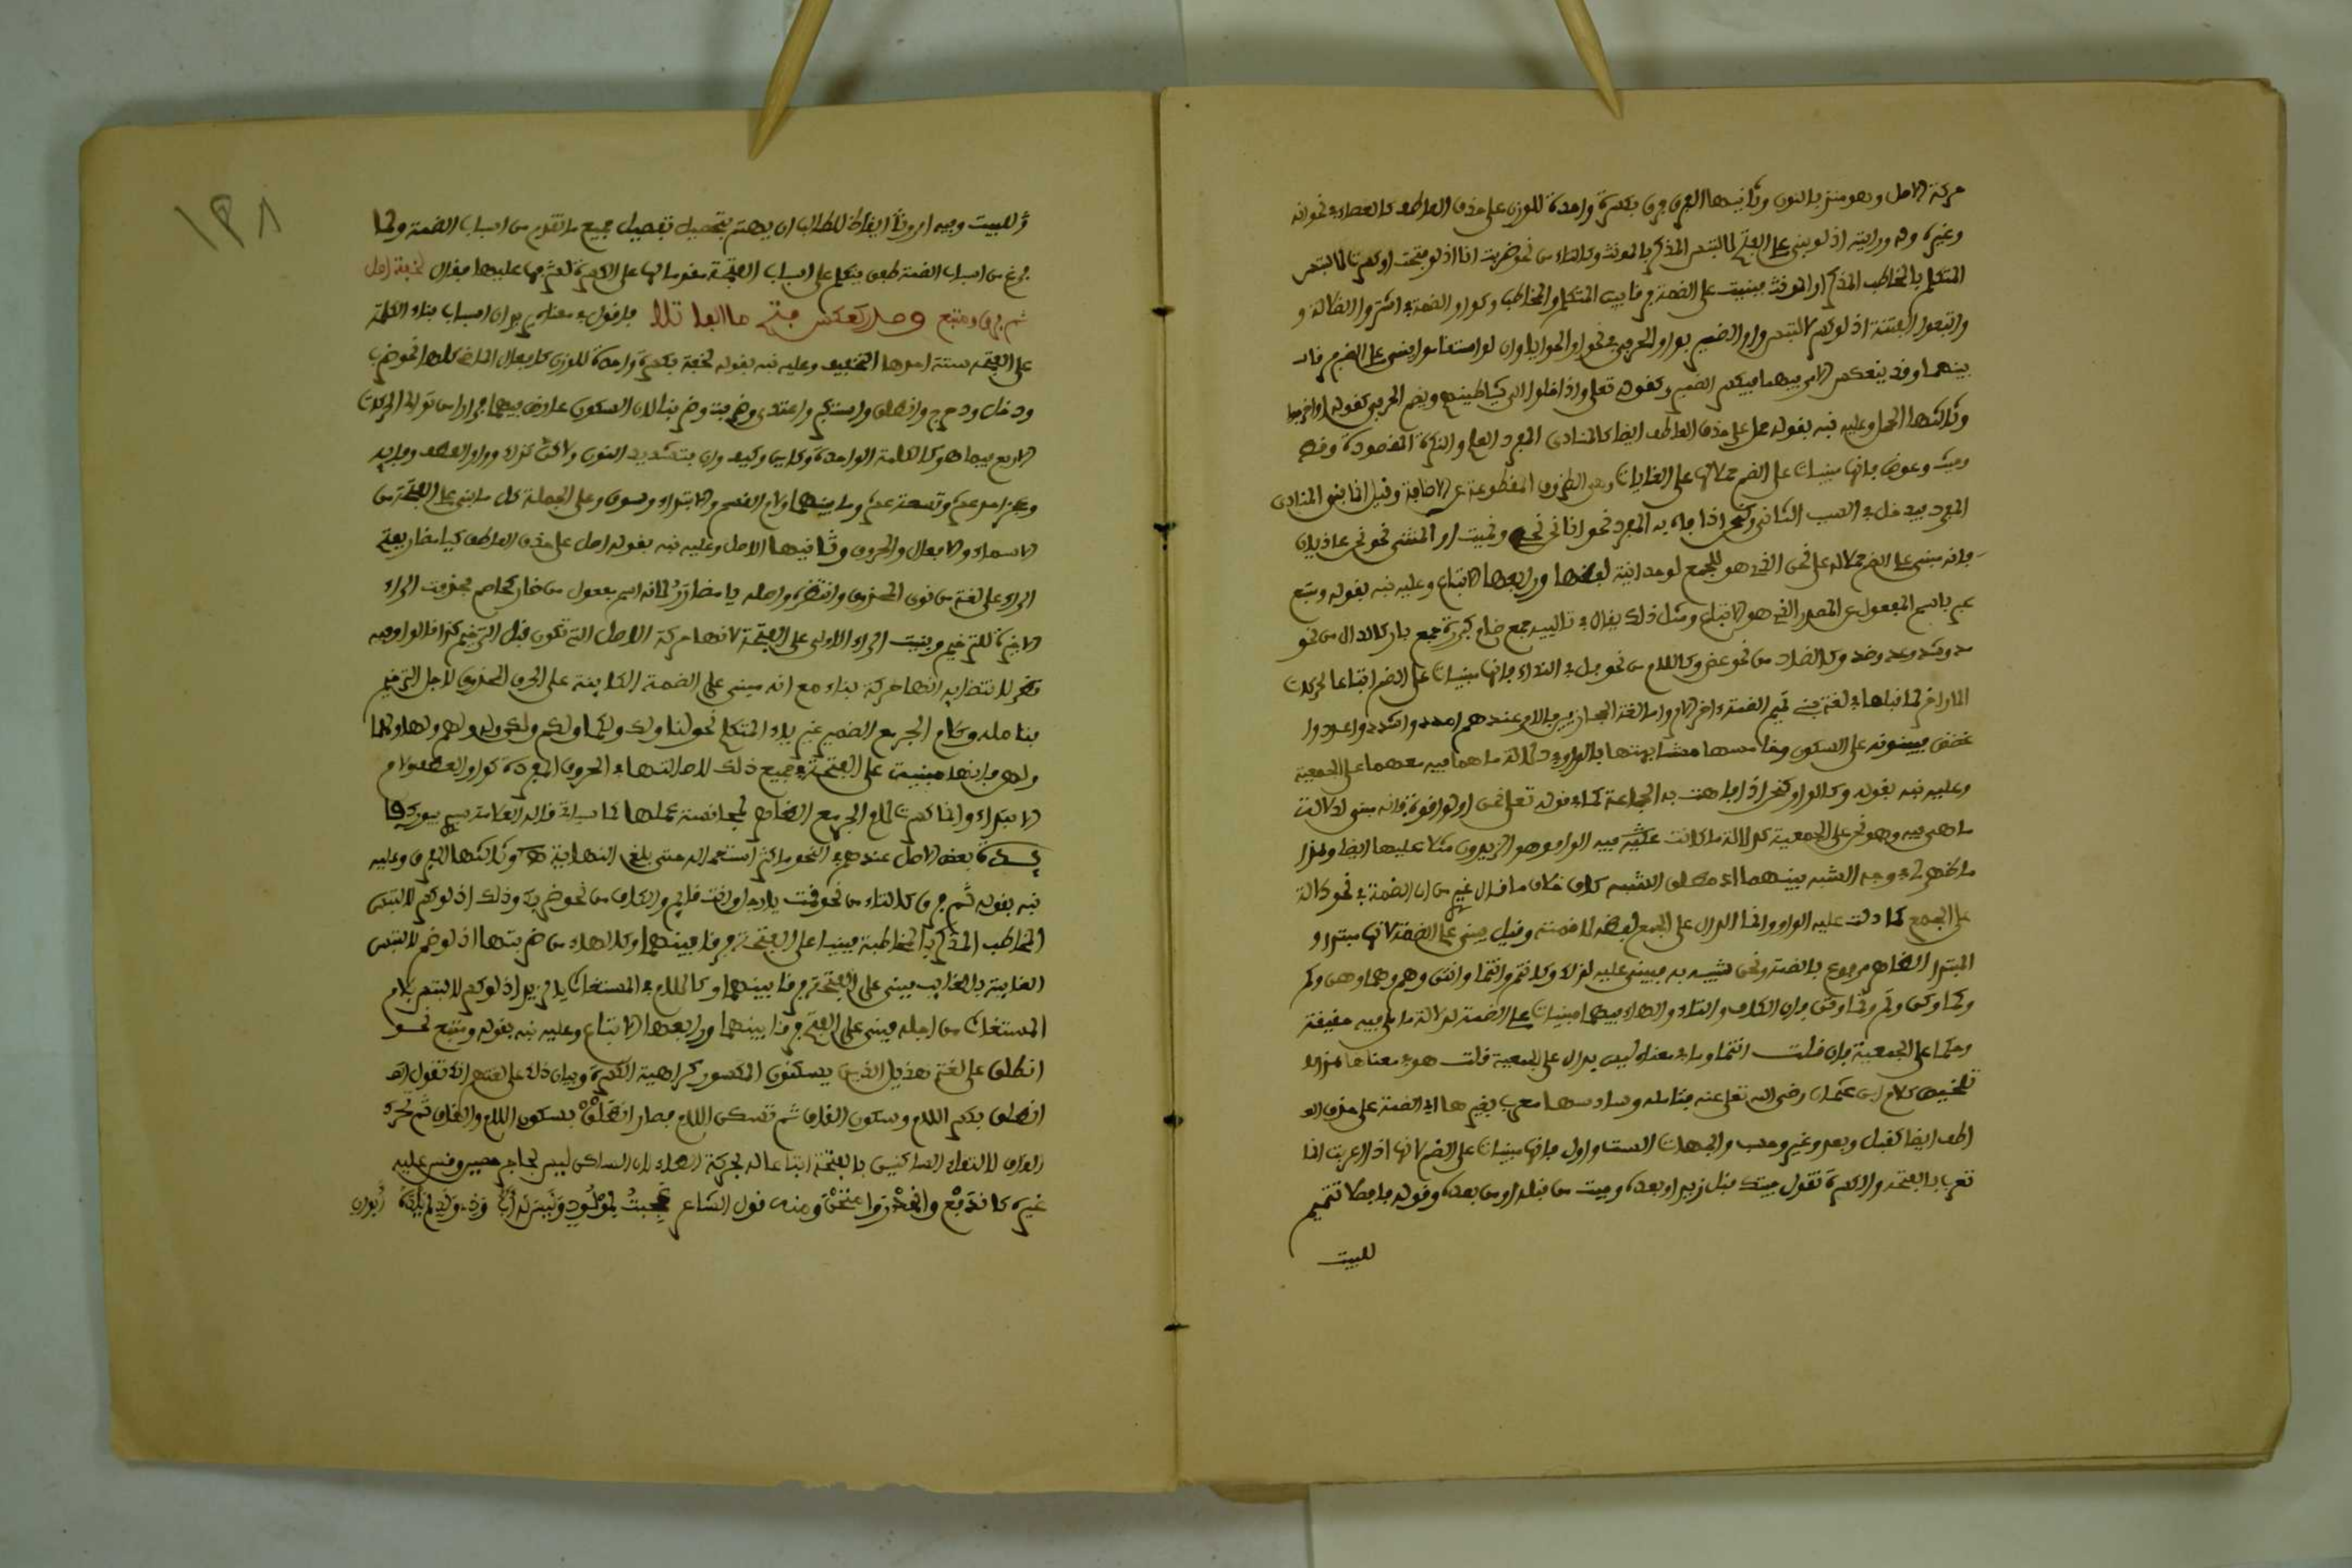 حركة الاصل وهو منذ بالنون وثانيها الفرق فرق بكسرة واحدة للوزن على حذف العاطف كالعصا في نحو انه
وغيره وله ورايته اذ لو بني على الفتح لالتبس المذكر بالمونث وكالتاء من نحو ضربت انا اذ لو فتحت او كسرت لالتبس
المتكلم بالمخاطب المذكر او المونث فبنيت على الضمة فرقا بين المتكلم والمخاطب وكواو الضمة في اشتروا الضلالة و
واتبعوا الفتنة اذ لو كسر لالتبس واو الضمير بواو الحرف في نحو او الحوايا وان لو استقاموا فبني على الضم فرقا
بينهما وقد ينعكس الامر فيهما فيكسر الضمير كقوله تعلى واذا خلوا الى شياطينهم ويضم الحرفي كقوله او اخرجوا
وثالثها الحمل وعليه نبه بقوله حمل على حذف العاطف ايضا كالمنادى المفرد العلم والنكرة المقصودة وقط
وحيث وعوض فانها مبنيات على الضم حملا لها على الغايات وهي الظروف المقطوعة عن الاضافة وقيل انما بني المنادى
المفرد فيدخل في السبب الثاني وكنحن اذا جاء به المفرد نحو انا نحن نحيي ونميت او المثنى نحو نحن عاذيان
فانه مبني على الضم حملا له على نحن الذي هو للجمع لوحدانية لفظها ورابعها الاتباع وعليه نبه بقوله وتبع
عبر باسم المفعول عن المصدر الذي هو الاتباع ومثل ذلك يقال في تاليه جمع ضاع كررة جمع بار كالدال من نحو
مد وشد وعد وضد وكالضاد من نحو عض وكاللام من نحو فل في النداء فانها مبنيات على الضم اتباعا لحركات
الاواخر لما قبلها في لغة بني تميم الضمة في اخر الامر واما لغة الحجازيين فالامر عندهم امدد واشدد واعدد و
غضض يبنونه على السكون وخامسها مشابهتها بالواو في دلالة ما هما فيه معهما على الجمعية
وعليه نبه بقوله وكالواو كنحن اذا جاءت به الجماعة كما في قوله تعلى نحن اولوا قوة فانه مبني لدلالة
ما هي فيه وهو نحن على الجمعية كدلالة ما كانت فيه الواو وهو الزيدون مثلا عليها ايضا وهذا
ما ظهر لي في وجه الشبه بينهما اي مطلق الشبه كان خلاف ما قال غير من ان الضمة في نحن دالة
على الجمع كما دلت عليه الواو وانما الدال على الجمع لفظه لا ضمته وقيل بني على الضمة لانها مبتدا و
المبتدا الظاهر مرفوع بالضمة ونحن شبيه به فبني عليه لذلك وكانتم وانتما وانتن وهم وهما وهن وكم
وكما وكن وتم وتما وتن فان الكاف والتاء والهاء فيها مبنيات على الضمة لدلالة ما هي فيه حقيقة
وحكما على الجمعية فان قلت انتما وما في معناه ليس يدل على الجمعية قلت هو في معناها هذا
تلخيص كلام ابن عثمان رضي الله تعلى عنه فتامله وسادسها معرب بغيرها اي الضمة على حذف العا
اطف ايضا كقبل وبعد وغير وحسب والجهات الست واول فانها مبنيات على الضم لانها اذا اعربت انما
تعرب بالفتحة والكسرة تقول جيتك قبل زيد او بعده وجيت من قبله او من بعده وقوله فاعلا تتميم
للبيت
١٣٨
للبيت وفيه امر وثا ايقاظ للطالب ان يهتم بتحصيل تفصيل جميع ما تقدم من اسباب الضمة ولما
فرغ من اسباب الضمة طفق يتكلم على اسباب الفتحة مقدما لها على الكسرة لعثرتها عليها فقال لخفة اصل
ثم فرق ومتبع وصلا كعكس فتح ما اليها تلا فاقول في معناه يريد ان اسباب بناء الكلمة
على الفتحة ستة احدها التخفيف وعليه نبه بقوله لخفة بكسرة واحدة للوزن كالافعال الماضية كلها نحو ضرب
ودخل ودحرج وانطلق واستخرج واعتدى وضربت وضربنا لان السكون عارض فيهما فرارا من توالي الحركات
الاربع فيما هو كالكلمة الواحدة وكاين وكيف وان بتشديد النون ولاكن كذلك وواو العطف وفايه
وعن احد عشر وتسعة عشر وما بينهما ولام القسم والابتداء وسوف وعلى الجملة كل ما بني على الفتحة من
الاسماء والافعال والحروف وثانيها الاصل وعليه نبه بقوله اصل على حذف العاطف كيا مضار بفتح
الراء على لغة من نوى المحذوف وانتظره واصله يا مضارر لانه اسم مفعول من ضار كخاصم فحذفت الراء
الاخيرة للترخيم وبقيت الراء الاولى على الفتحة لانها حركة الاصل التي تكون قبل الترخيم كذا قالوا وفيه
نظر للانتظار به انها حركة بناء مع انه مبني على الضمة الكاينة على الحرف المحذوف لاجل الترخيم
فتامله وكلام الجر مع الضمير غير ياء المتكلم نحو لنا ولك ولكما ولكم ولكن وله ولهم ولها ولهما
ولهن فانها مبنيت على الفتحة في جميع ذلك لاصالتها في الحروف المفردة كواو العطف ولام
الابتداء وانما كسرت لام الجر مع الظاهر لمجانسة عملها كما سياتي قاله العلامة سيبويه
فايدة بعض الاصل عندهم في النحو ما كثر استعماله حتى بلغ النهاية هـ وثالثها الفرق وعليه
نبه بقوله ثم فرق كالتاء من نحو قمت يا رجل وانت قايم والكاف من نحو ضربك وذلك اذ لو كسر لالتبس
المخاطب المذكر بالمخاطبة فبنيا على الفتحة فرقا بينهما وكالهاء من ضربتها اذ لو ضم لالتبس
الغايبة بالغايب فبني على الفتحة فرقا بينهما وكاللام في المستغاث يا لزيد اذ لو كسر لالتبس بلام
المستغاث من اجله فبني على الفتح فرقا بينهما ورابعها الاتباع وعليه نبه بقوله ومتبع نحو
انطلق على لغة هذيل الذين يسكنون المكسور كراهية الكسرة وبيان ذلك على لغتهم انك تقول في
انطلق بكسر اللام وسكون القاف ثم تسكن اللام فصار انطلق بسكون اللام والقاف ثم تحرك
القاف لالتقاء الساكنين بالفتحة اتباعا له لحركة الطاء لان الساكن ليس بحاجز حصين وقس عليه
غيره كاندفع وانحدر وا ومنه قول الشاعر عجبت لمولود وليس له اب وذي ولد لم يلده ابوان